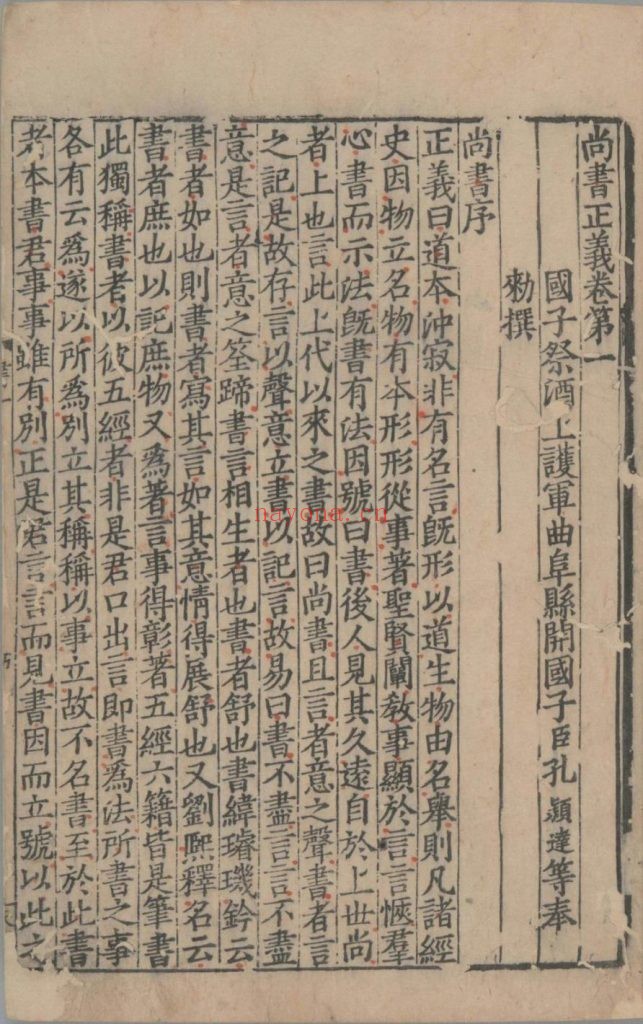 尚書正義卷第一
國子祭酒上護軍曲阜縣開國子臣孔穎達等奉
勑撰
尚書序
正義曰道本沖寂非有名言旣形以道生物由名舉則凡諸經
史因物立名物有本形形從事著聖賢闡敎事顯於言言愜羣
心書而示法旣書有法因號曰書後人見其久遠自於上世尚
者上也言此上代以來之書故曰尚書且言者意之聲書者言
之記是故存言以聲意立書以記言故易曰書不盡言言不盡
意是言者意之筌蹄書言相生者也書者舒也書緯璿璣鈐云
書者如也則書者寫其言如其意情得展舒也又劉熙釋名云
書者庶也以記庶物又爲著言事得彰著五經六籍皆是筆書
此獨稱書者以彼五經者非是君口出言即書爲法所書之事
各有云爲遂以所爲別立其稱稱以事立故不名書至於此書
者本書君事事雖有別正是君言言而見書因而立號以此之
nayona.cn